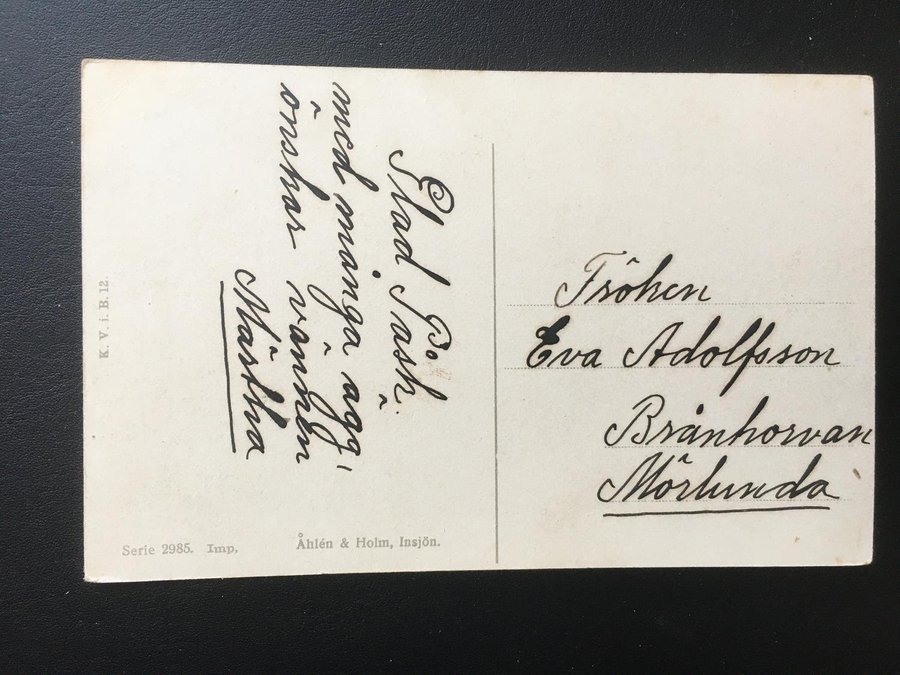 Glad Påsk.
med många ägg,
önskar vännen
Märtha
Fröken
Eva Adolfsson
Mörlunda
K. V. i. B. 12.
Serie 2985. Imp.
Åhlén & Holm, Insjön.